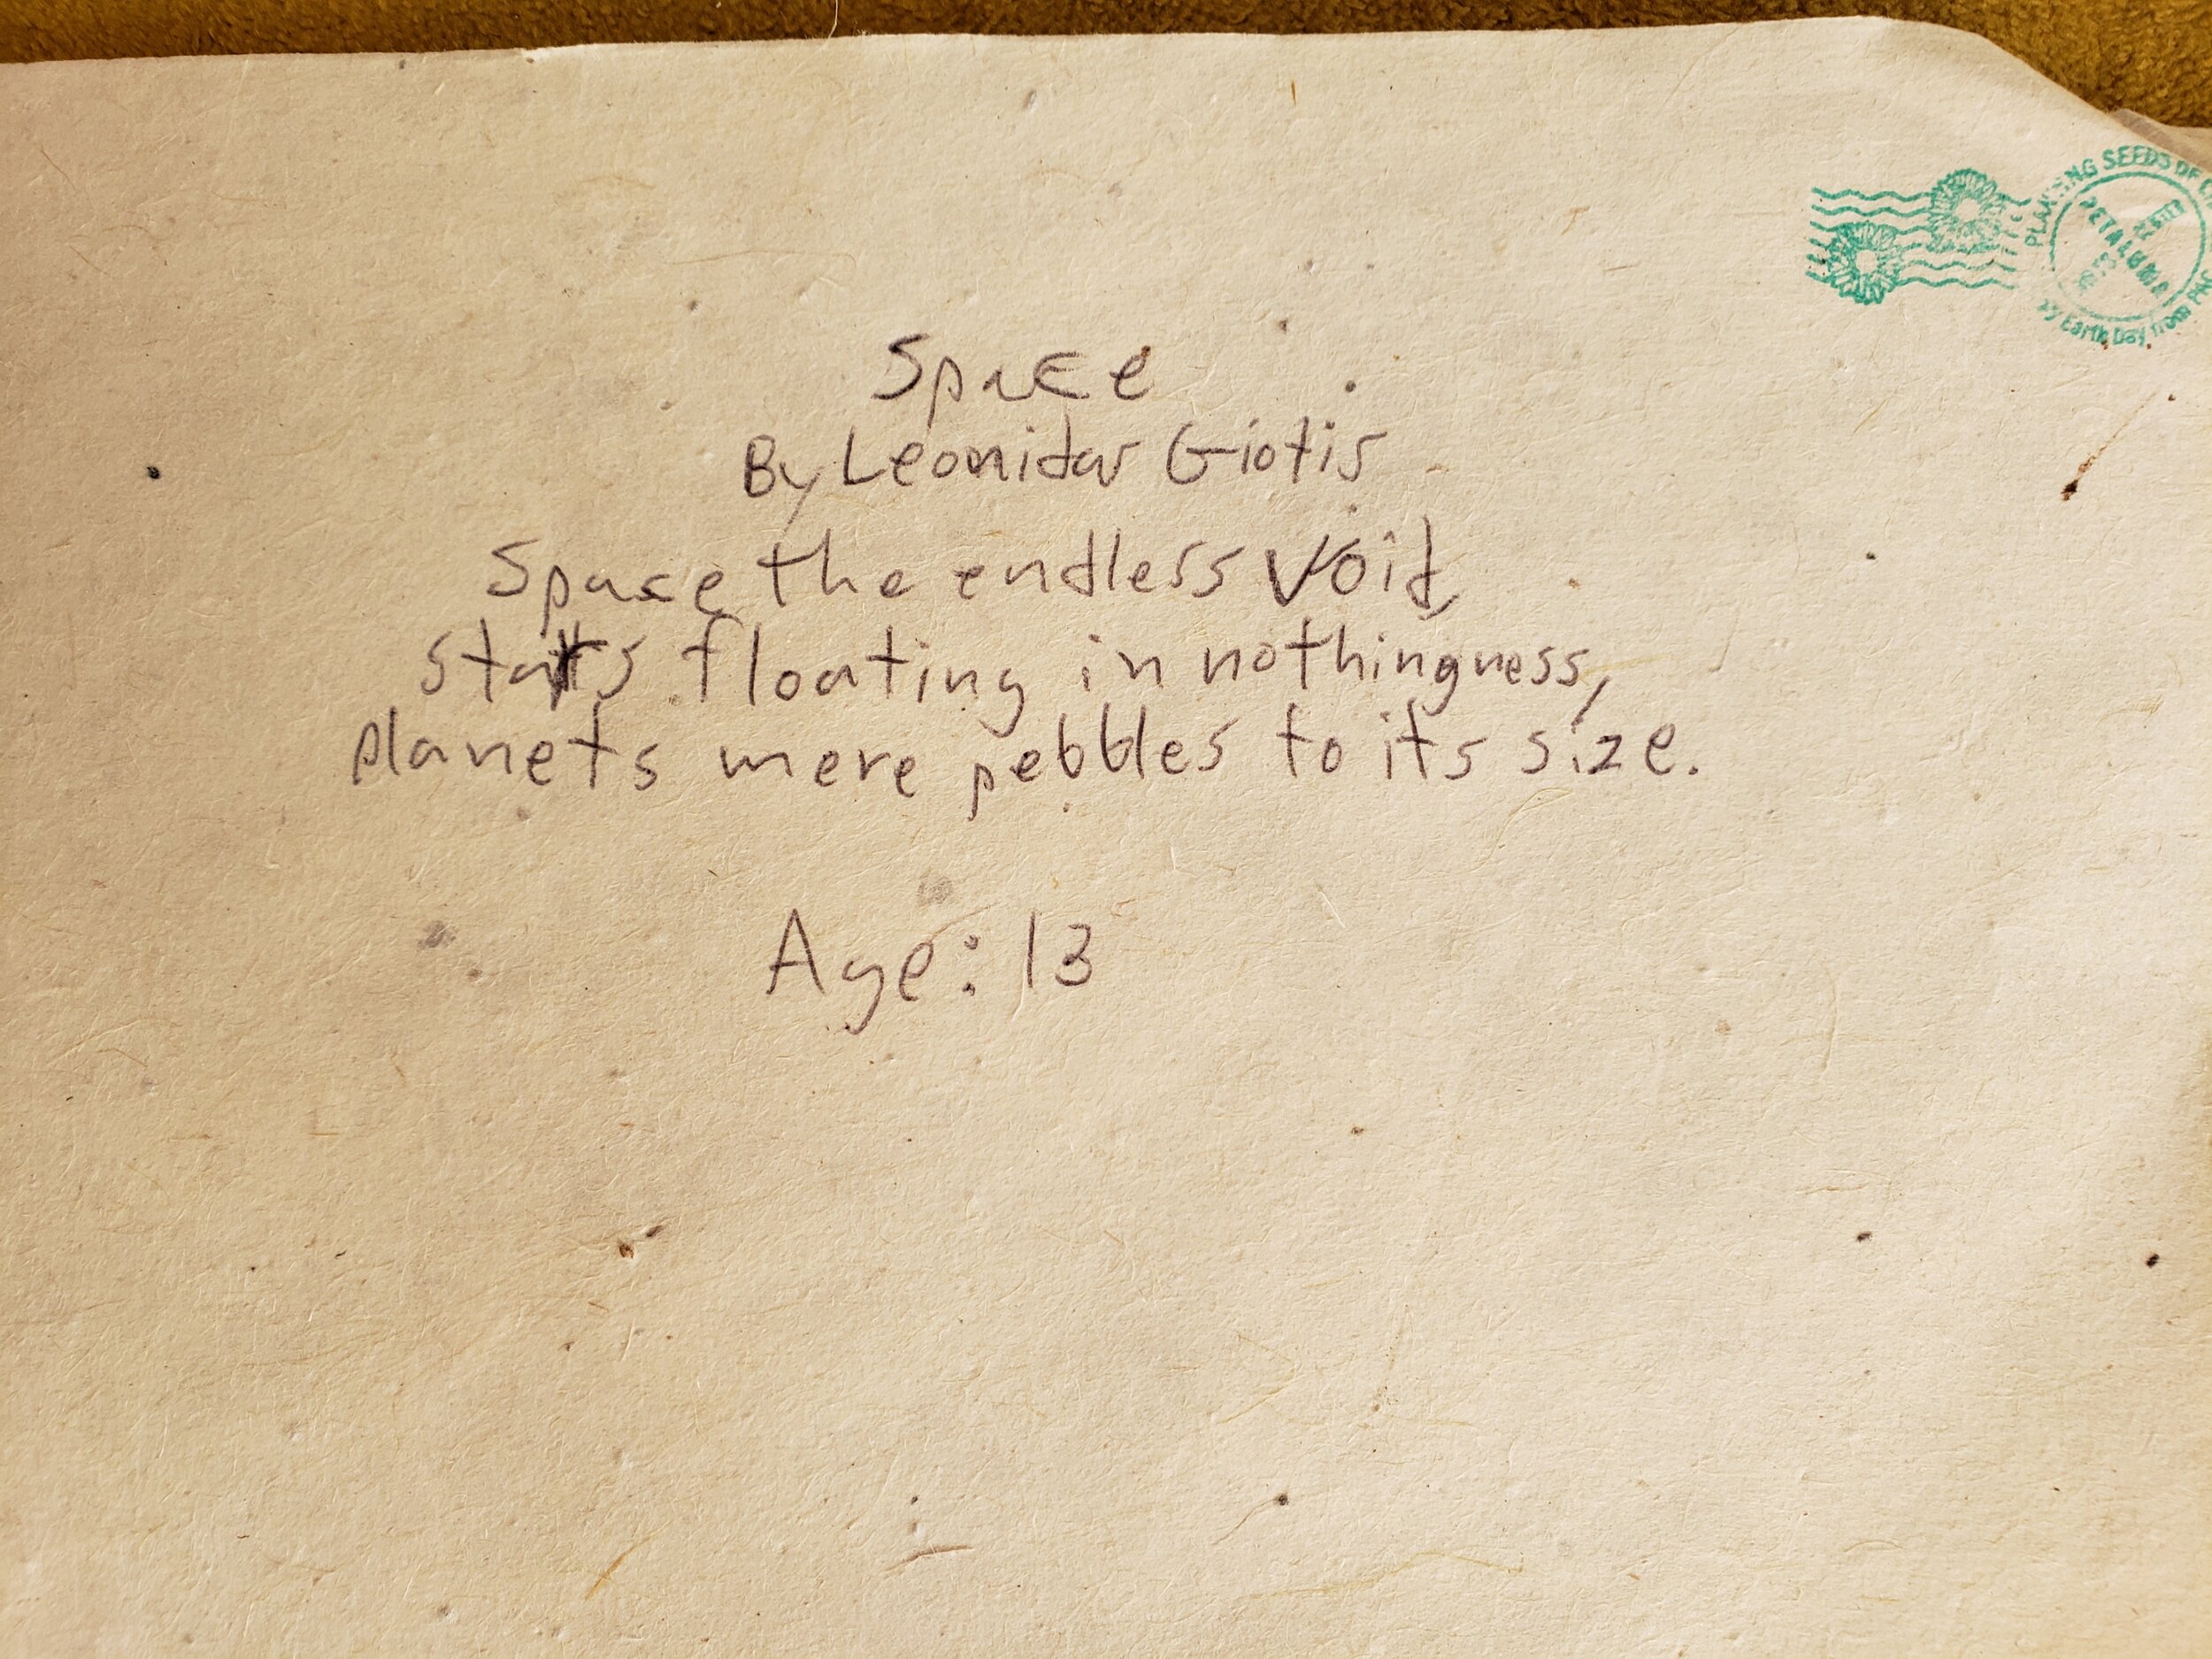 Space
By Leonidas Giotis
Space the endless void,
stars floating in nothingness,
planets mere pebbles to its size.
Age: 13
SEEDS OF
PETALUMA
Earth Day from